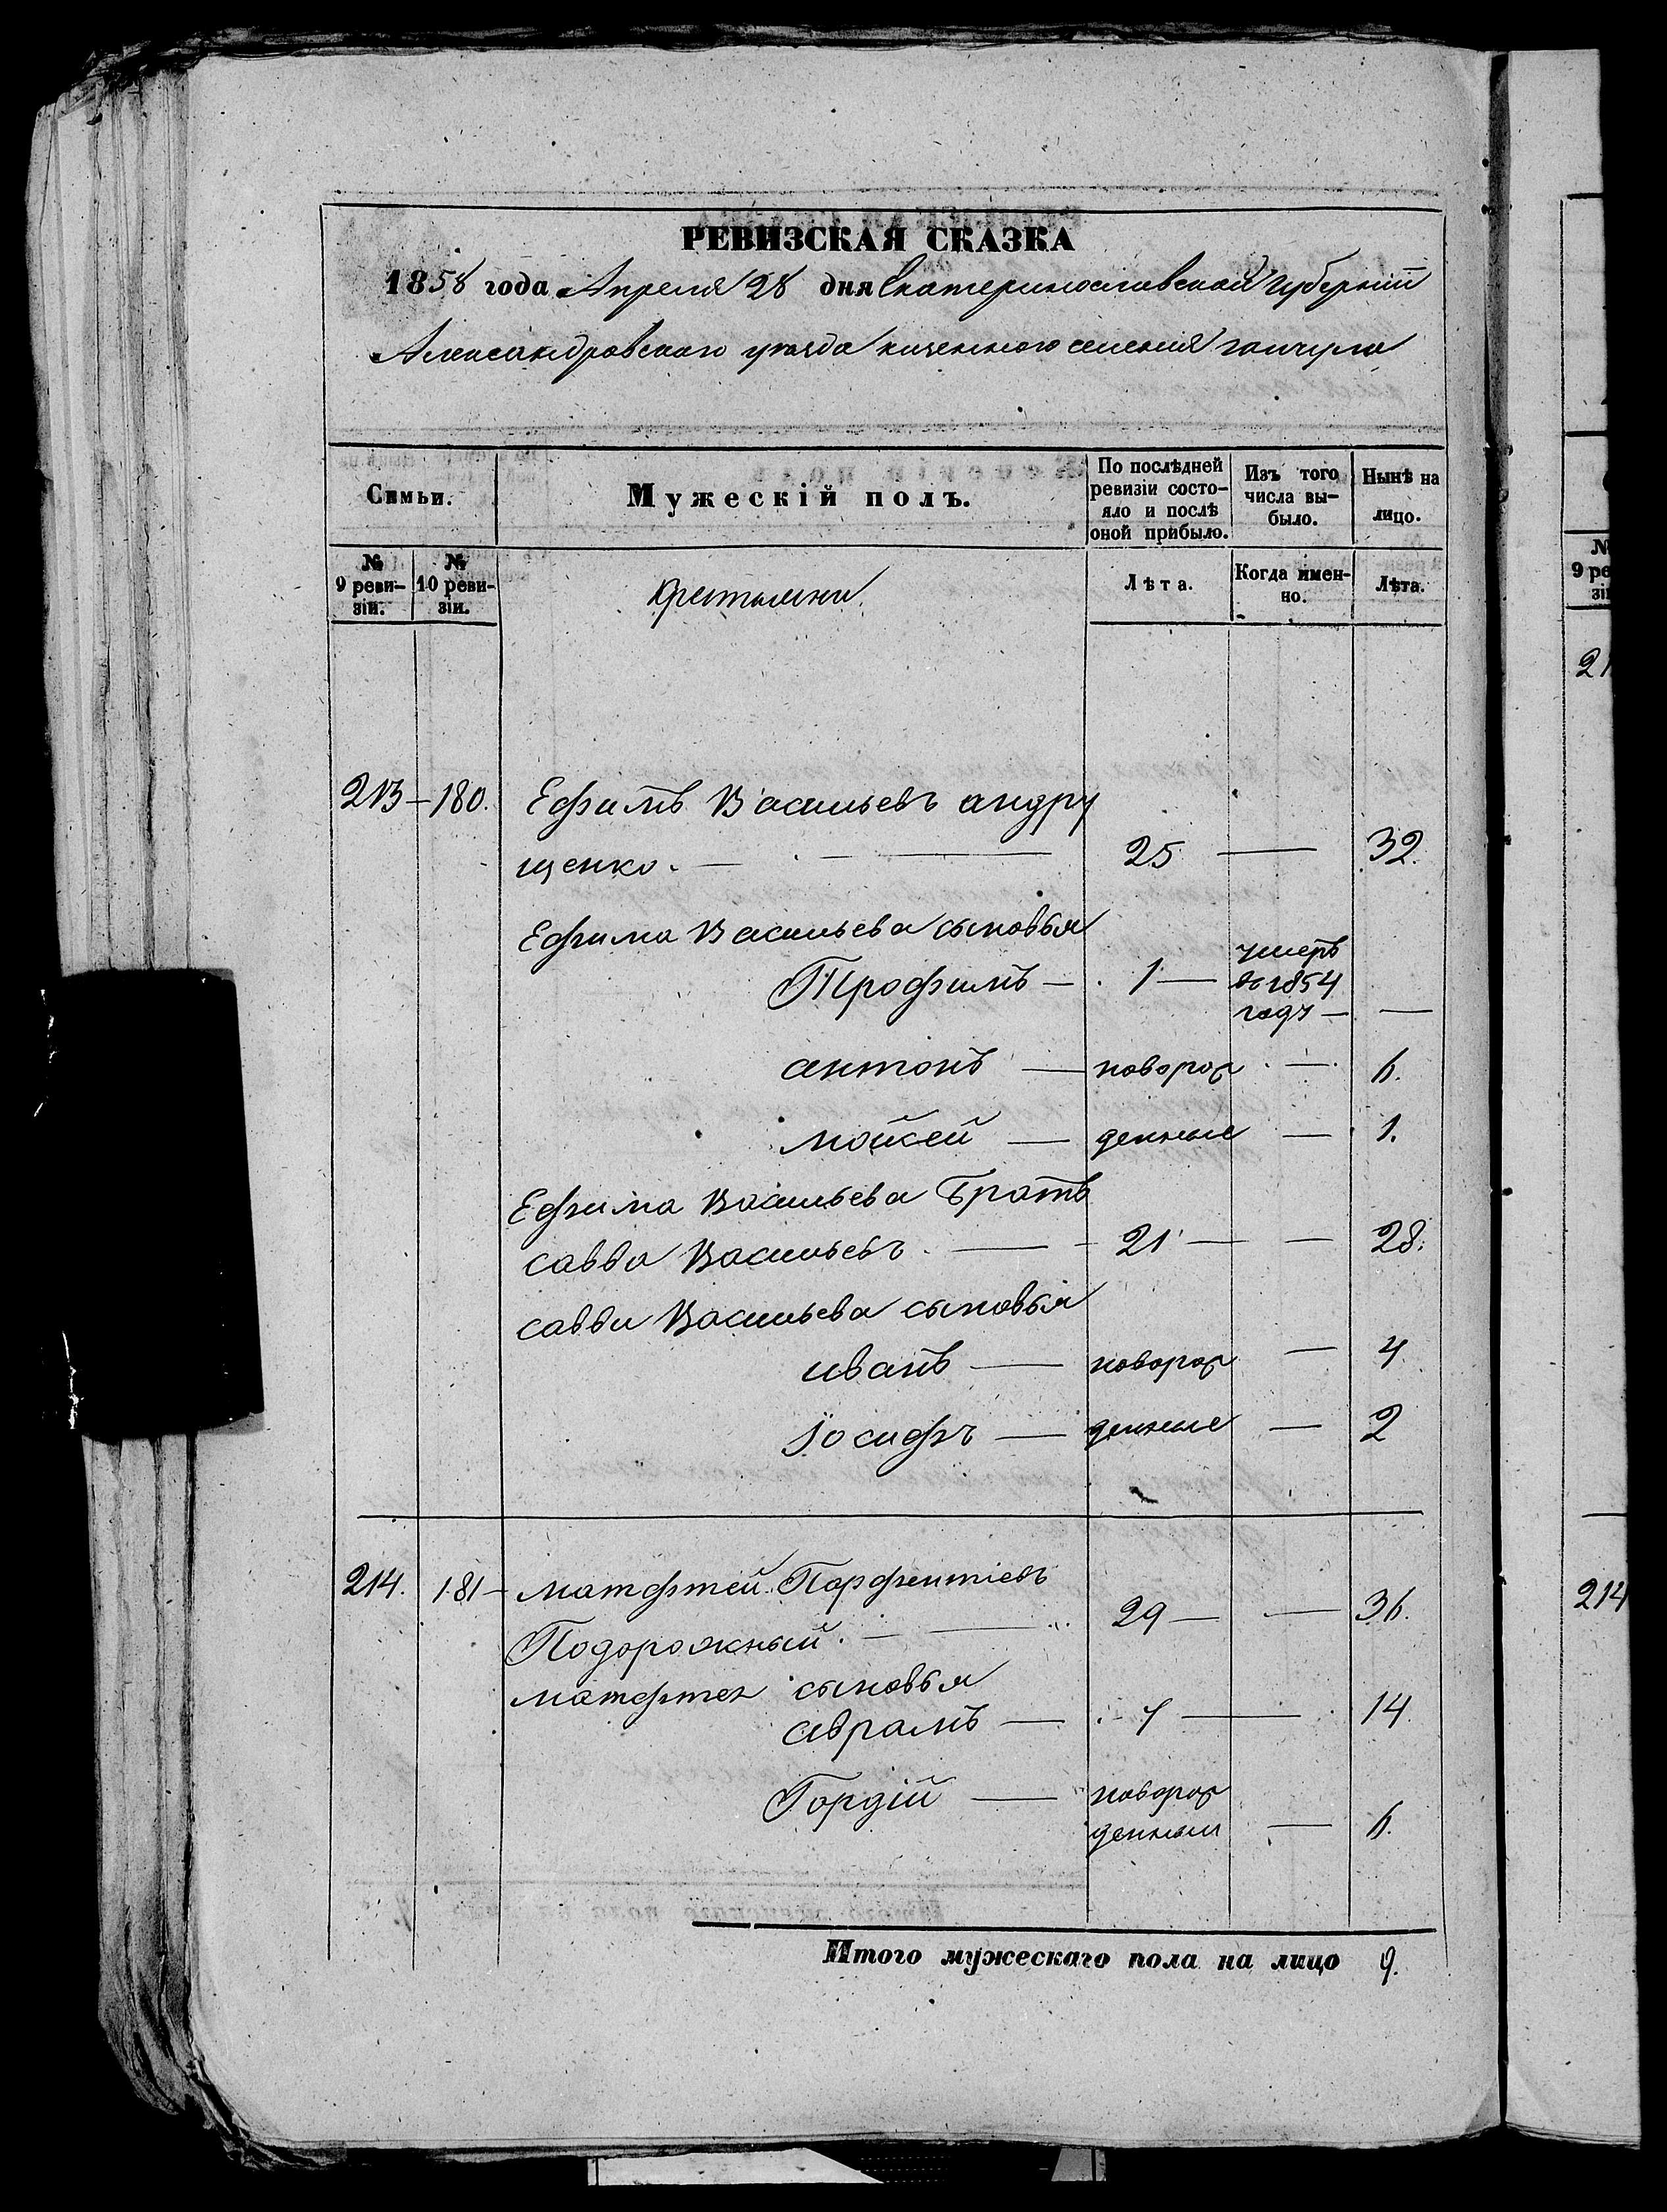 РЕВИЗСКАЯ СКАЗКА
1858 года Апреля 28 дня Екатеринославской Губернiи
Александровскаго уезда казенного селения гайчула
Семьи.
Мужескiй полъ.
По послѣдней ревизiи состо-
яло и послѣ
оной прибыло.
Изъ того
числа вы-
было.
Нынѣ на
лицо.
№
9 реви-
зiи.
№
10 реви-
зiи.
Крестьяни
Лѣта.
Когда имен-
но.
Лѣта.
213 — 180. Ефимъ Васильевъ андру
щенко. — 25 — 32.
Ефима Васильева сыновья
Трофимъ — 1 — умеръ
въ 1854
году — —
антонъ — новорож — 6.
мойсей — денные — 1.
Ефима Васильева Братъ
савва Васильевъ. — 21 — — 28.
саввы Васильева сыновья
иванъ — новорож — 4
Iосифъ — денные — 2
214. 181 — матфтей Парфентiевъ
Подорожный. — 29 — — 36.
матфтея сыновья
аврамъ — 7 — 14.
Гордiй — новорож
денный — 6.
Итого мужескаго пола на лицо 9.
№
9 ре
зiи
21
214